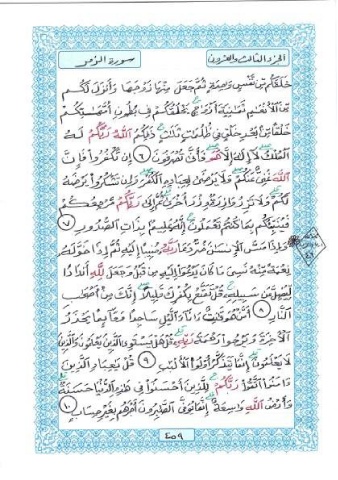 الجزء الثالث والعشرون
سورة الزمر
خَلَقَكُم مِّن نَّفْسٍ وَاحِدَةٍ ثُمَّ جَعَلَ مِنْهَا زَوْجَهَا وَأَنزَلَ لَكُم
مِّنَ الْأَنْعَامِ ثَمَانِيَةَ أَزْوَاجٍ يَخْلُقُكُمْ فِي بُطُونِ أُمَّهَاتِكُمْ
خَلْقًا مِّن بَعْدِ خَلْقٍ فِي ظُلُمَاتٍ ثَلَاثٍ ذَلِكُمُ اللَّهُ رَبُّكُمْ لَهُ
الْمُلْكُ لَا إِلَهَ إِلَّا هُوَ فَأَنَّى تُصْرَفُونَ ٦ إِن تَكْفُرُوا فَإِنَّ
اللَّهَ غَنِيٌّ عَنكُمْ وَلَا يَرْضَى لِعِبَادِهِ الْكُفْرَ وَإِن تَشْكُرُوا يَرْضَهُ
لَكُمْ وَلَا تَزِرُ وَازِرَةٌ وِزْرَ أُخْرَى ثُمَّ إِلَى رَبِّكُم مَّرْجِعُكُمْ
فَيُنَبِّئُكُم بِمَا كُنتُمْ تَعْمَلُونَ إِنَّهُ عَلِيمٌ بِذَاتِ الصُّدُورِ ٧
وَإِذَا مَسَّ الْإِنسَانَ ضُرٌّ دَعَا رَبَّهُ مُنِيبًا إِلَيْهِ ثُمَّ إِذَا خَوَّلَهُ
نِعْمَةً مِّنْهُ نَسِيَ مَا كَانَ يَدْعُو إِلَيْهِ مِن قَبْلُ وَجَعَلَ لِلَّهِ أَندَادًا
لِّيُضِلَّ عَن سَبِيلِهِ قُلْ تَمَتَّعْ بِكُفْرِكَ قَلِيلًا إِنَّكَ مِنْ أَصْحَابِ
النَّارِ ٨ أَمَّنْ هُوَ قَانِتٌ آنَاءَ اللَّيْلِ سَاجِدًا وَقَائِمًا يَحْذَرُ
الْآخِرَةَ وَيَرْجُوا رَحْمَةَ رَبِّهِ قُلْ هَلْ يَسْتَوِي الَّذِينَ يَعْلَمُونَ وَالَّذِينَ
لَا يَعْلَمُونَ إِنَّمَا يَتَذَكَّرُ أُولُوا الْأَلْبَابِ ٩ قُلْ يَا عِبَادِ الَّذِينَ
آمَنُوا اتَّقُوا رَبَّكُمْ لِلَّذِينَ أَحْسَنُوا فِي هَذِهِ الدُّنْيَا حَسَنَةٌ
وَأَرْضُ اللَّهِ وَاسِعَةٌ إِنَّمَا يُوَفَّى الصَّابِرُونَ أَجْرَهُم بِغَيْرِ حِسَابٍ ١٠
٤٥٩